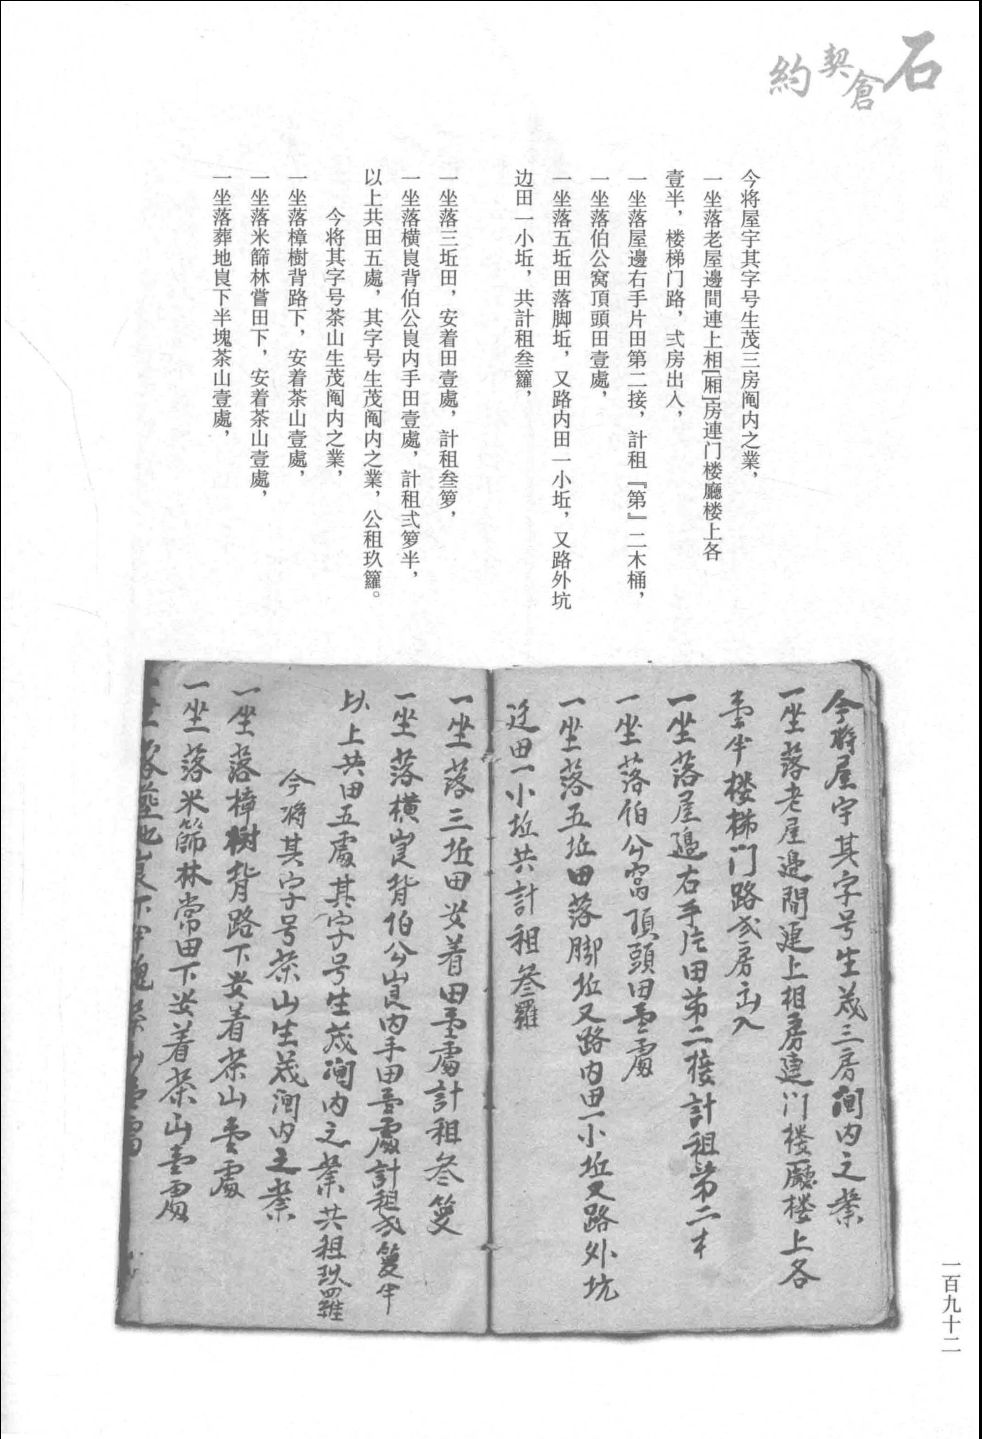 石倉契約
今将屋宇其字号生茂三房阄内之業，
一坐落老屋邊間連上相[厢]房連门楼廳楼上各
壹半，楼梯门路，弍房出入，
一坐落屋邊右手片田第二接，計租『第』二木桶，
一坐落伯公窩頂頭田壹處，
一坐落五坵田落脚坵，又路内田一小坵，又路外坑
边田一小坵，共計租叁籮，
一坐落三坵田，安着田壹處，計租叁箩，
一坐落横崀背伯公崀内手田壹處，計租弍箩半，
以上共田五處，其字号生茂阄内之業，公租玖籮。
今将其字号茶山生茂阄内之業，
一坐落樟樹背路下，安着茶山壹處，
一坐落米篩林嘗田下，安着茶山壹處，
一坐落葬地崀下半塊茶山壹處，
今将屋宇其字号生茂三房阄内之業
一坐落老屋邉間連上相房連门楼廳楼上各
壹半楼梯门路弍房出入
一坐落屋邉右手片田第二接計租第二木
一坐落伯公窩頂頭田壹處
一坐落五坵田落脚坵又路内田一小坵又路外坑
边田一小坵共計租叁籮
一坐落三坵田安着田壹處計租叁箩
一坐落横崀背伯公崀内手田壹處計租弍箩半
以上共田五處其字号生茂阄内之業共租玖籮
今将其字号茶山生茂阄内之業
一坐落樟樹背路下安着茶山壹處
一坐落米篩林常田下安着茶山壹處
一坐落葬地崀下半塊茶山壹處
一百九十二